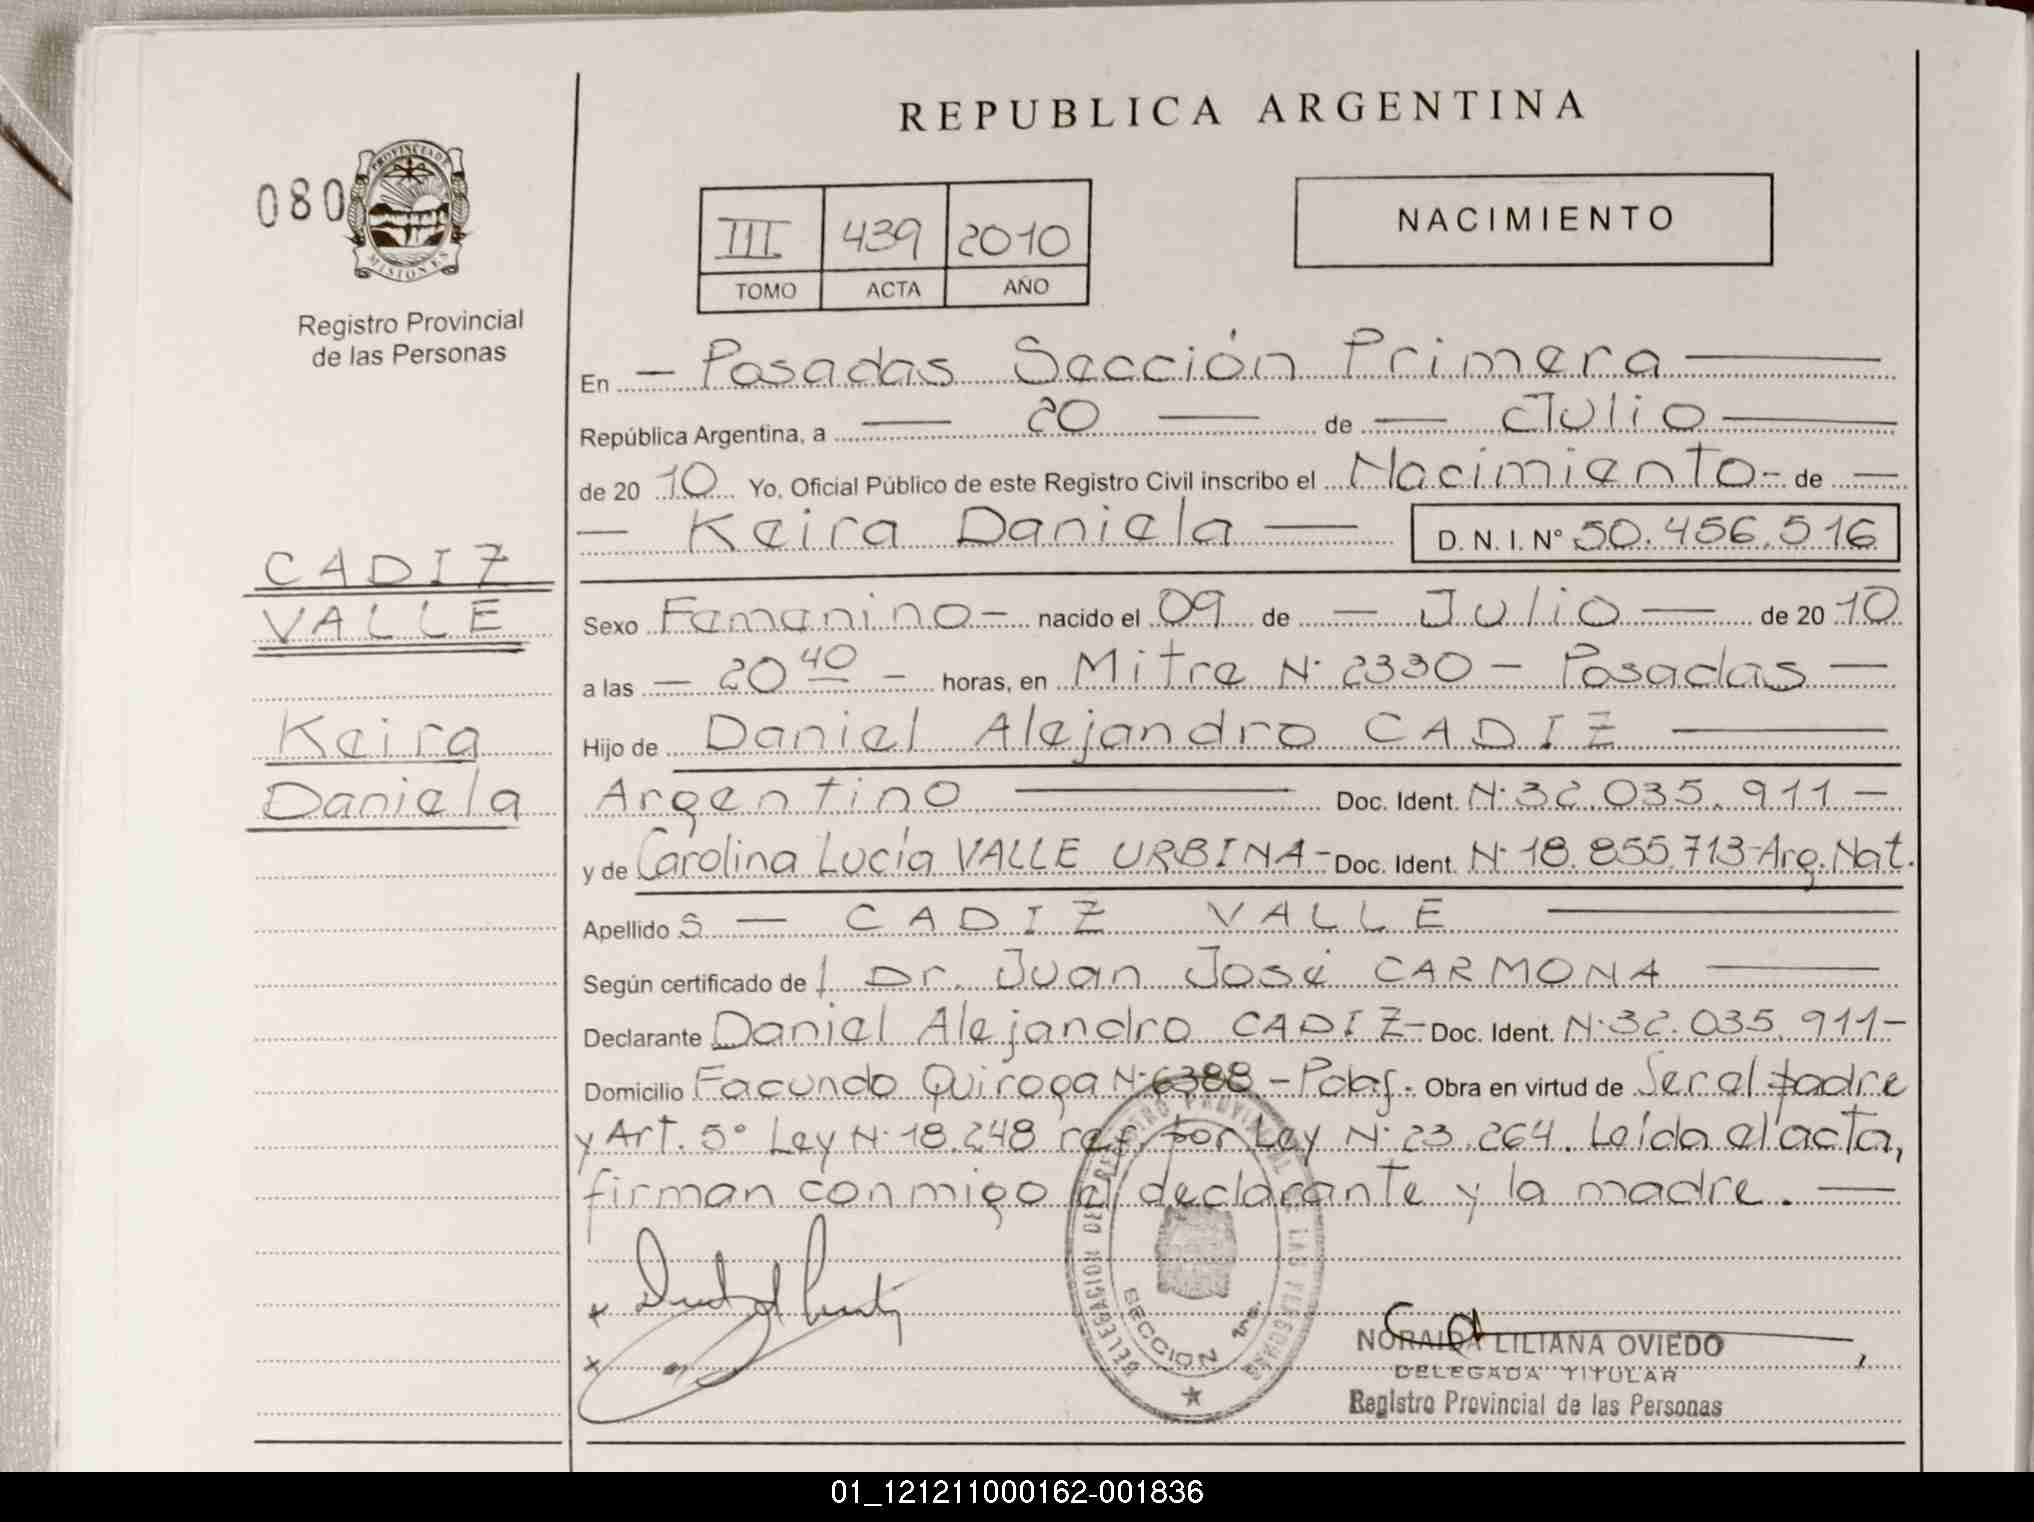 REPUBLICA ARGENTINA
080
PROVINCIA DE
MISIONES
Registro Provincial
de las Personas
III 439 2010
TOMO ACTA AÑO
NACIMIENTO
En - Posadas Sección Primera
República Argentina, a 20 de Julio
de 2010 Yo, Oficial Público de este Registro Civil inscribo el Nacimiento - de -
- Keira Daniela - D. N. I. Nº 50.456.516
CADIZ
VALLE
Keira
Daniela
Sexo Femenino - nacido el 09 de - Julio - de 2010
a las - 20 40 - horas, en Mitre Nº 2330 - Posadas -
Hijo de Daniel Alejandro CADIZ
Argentino Doc. Ident. Nº 32.035.911 -
y de Carolina Lucía VALLE URBINA - Doc. Ident. Nº 18.855.713-Arg. Nat.
Apellido s - CADIZ VALLE
Según certificado de / Dr. Juan José CARMONA
Declarante Daniel Alejandro CADIZ - Doc. Ident. Nº 32.035.911 -
Domicilio Facundo Quiroga Nº 6388 - Pdas. Obra en virtud de Ser el padre
y Art. 5° Ley Nº 18.248 ref. por Ley Nº 23.264. Leída el acta,
firman conmigo el declarante y la madre. -
DELEGACION DEL REGISTRO PROVINCIAL DE LAS PERSONAS
SECCION 1ra.
NORAIDA LILIANA OVIEDO
DELEGADA TITULAR
Registro Provincial de las Personas
01_121211000162-001836